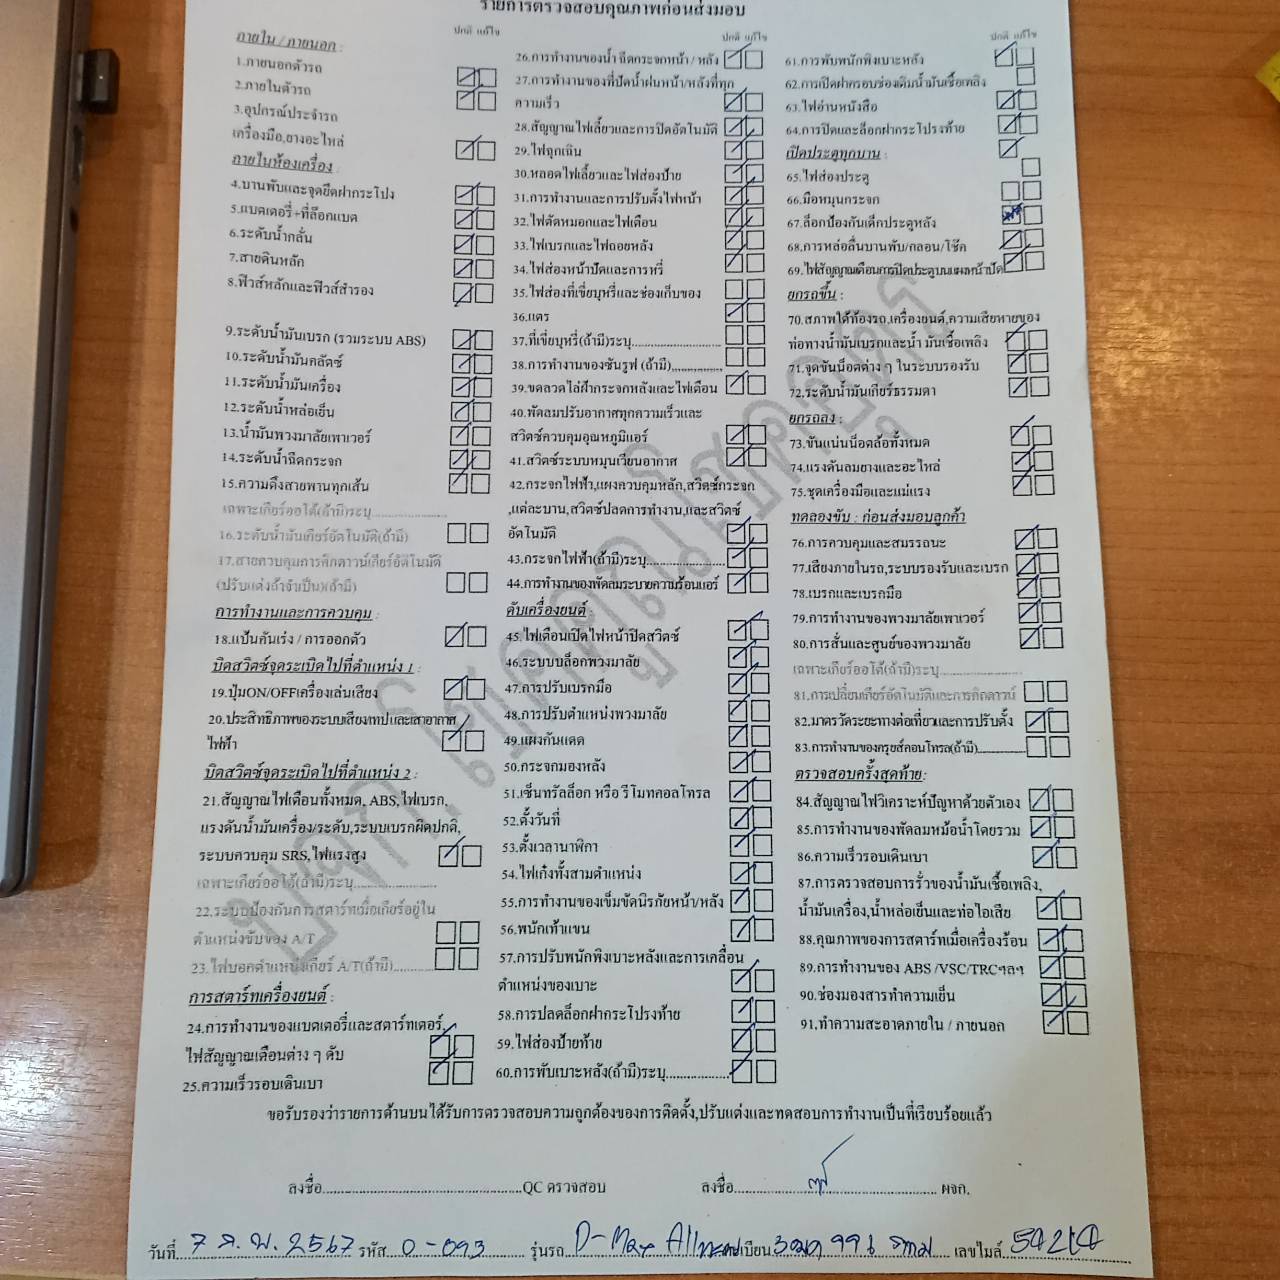 รายการตรวจสอบคุณภาพก่อนส่งมอบ
ปกติ แก้ไข
ภายใน / ภายนอก :
1.ภายนอกตัวรถ
2.ภายในตัวรถ
3.อุปกรณ์ประจำรถ
เครื่องมือ,ยางอะไหล่
ภายในห้องเครื่อง :
4.บานพับและจุดยึดฝากระโปง
5.แบตเตอรี่+ที่ล็อกแบต
6.ระดับน้ำกลั่น
7.สายดินหลัก
8.ฟิวส์หลักและฟิวส์สำรอง
9.ระดับน้ำมันเบรก (รวมระบบ ABS)
10.ระดับน้ำมันคลัตซ์
11.ระดับน้ำมันเครื่อง
12.ระดับน้ำหล่อเย็น
13.น้ำมันพวงมาลัยเพาเวอร์
14.ระดับน้ำฉีดกระจก
15.ความตึงสายพานทุกเส้น
เฉพาะเกียร์ออโต้(ถ้ามี)ระบุ
16.ระดับน้ำมันเกียร์อัตโนมัติ(ถ้ามี)
17.สายควบคุมการคิกดาวน์เกียร์อัติโนมัติ
(ปรับแต่งถ้าจำเป็น)(ถ้ามี)
การทำงานและการควบคุม :
18.แป้นคันเร่ง / การออกตัว
บิดสวิตช์จุดระเบิดไปที่ตำแหน่ง 1 :
19.ปุ่มON/OFFเครื่องเล่นเสียง
20.ประสิทธิภาพของระบบเสียงเทปและเสาอากาศ
ไฟฟ้า
บิดสวิตซ์จุดระเบิดไปที่ตำแหน่ง 2 :
21.สัญญาณไฟเตือนทั้งหมด, ABS,ไฟเบรก,
แรงดันน้ำมันเครื่อง/ระดับ,ระบบเบรกผิดปกติ,
ระบบควบคุม SRS,ไฟแรงสูง
เฉพาะเกียร์ออโต้(ถ้ามี)ระบุ
22.ระบบป้องกันการสตาร์ทเมื่อเกียร์อยู่ใน
ตำแหน่งขับของ A/T
23.ไฟบอกตำแหน่งเกียร์ A/T(ถ้ามี)
การสตาร์ทเครื่องยนต์ :
24.การทำงานของแบตเตอรี่และสตาร์ทเตอร์,
ไฟสัญญาณเตือนต่าง ๆ ดับ
25.ความเร็วรอบเดินเบา
ปกติ แก้ไข
26.การทำงานของน้ำฉีดกระจกหน้า / หลัง
27.การทำงานของที่ปัดน้ำฝนหน้า/หลังที่ทุก
ความเร็ว
28.สัญญาณไฟเลี้ยวและการปิดอัตโนมัติ
29.ไฟฉุกเฉิน
30.หลอดไฟเลี้ยวและไฟส่องป้าย
31.การทำงานและการปรับตั้งไฟหน้า
32.ไฟตัดหมอกและไฟเตือน
33.ไฟเบรกและไฟถอยหลัง
34.ไฟส่องหน้าปัดและการหรี่
35.ไฟส่องที่เขี่ยบุหรี่และช่องเก็บของ
36.แตร
37.ที่เขี่ยบุหรี่(ถ้ามี)ระบุ
38.การทำงานของซันรูฟ (ถ้ามี)
39.ขดลวดไล่ฝ้ากระจกหลังและไฟเตือน
40.พัดลมปรับอากาศทุกความเร็วและ
สวิตซ์ควบคุมอุณหภูมิแอร์
41.สวิตซ์ระบบหมุนเวียนอากาศ
42.กระจกไฟฟ้า,แผงควบคุมหลัก,สวิตซ์กระจก
,แต่ละบาน,สวิตซ์ปลดการทำงาน,และสวิตซ์
อัตโนมัติ
43.กระจกไฟฟ้า(ถ้ามี)ระบุ
44.การทำงานของพัดลมระบายความร้อนแอร์
ดับเครื่องยนต์ :
45.ไฟเตือนเปิดไฟหน้าปิดสวิตซ์
46.ระบบบล็อกพวงมาลัย
47.การปรับเบรกมือ
48.การปรับตำแหน่งพวงมาลัย
49.แผงกันแดด
50.กระจกมองหลัง
51.เซ็นทรัลล็อก หรือ รีโมทคอลโทรล
52.ตั้งวันที่
53.ตั้งเวลานาฬิกา
54.ไฟเก๋งทั้งสามตำแหน่ง
55.การทำงานของเข็มขัดนิรภัยหน้า/หลัง
56.พนักเท้าแขน
57.การปรับพนักพิงเบาะหลังและการเคลื่อน
ตำแหน่งของเบาะ
58.การปลดล็อกฝากระโปรงท้าย
59.ไฟส่องป้ายท้าย
60.การพับเบาะหลัง(ถ้ามี)ระบุ
ปกติ แก้ไข
61.การพับพนักพิงเบาะหลัง
62.การเปิดฝาครอบช่องเติมน้ำมันเชื้อเพลิง
63.ไฟอ่านหนังสือ
64.การปิดและล็อกฝากระโปรงท้าย
เปิดประตูทุกบาน :
65.ไฟส่องประตู
66.มือหมุนกระจก
67.ล็อกป้องกันเด็กประตูหลัง
68.การหล่อลื่นบานพับ/กลอน/โช๊ค
69.ไฟสัญญาณเตือนการปิดประตูบนแผงหน้าปัด
ยกรถขึ้น :
70.สภาพใต้ท้องรถ,เครื่องยนต์,ความเสียหายของ
ท่อทางน้ำมันเบรกและน้ำมันเชื้อเพลิง
71.จุดขันน็อตต่าง ๆ ในระบบรองรับ
72.ระดับน้ำมันเกียร์ธรรมดา
ยกรถลง :
73.ขันแน่นน็อตล้อทั้งหมด
74.แรงดันลมยางและอะไหล่
75.ชุดเครื่องมือและแม่แรง
ทดลองขับ : ก่อนส่งมอบลูกค้า
76.การควบคุมและสมรรถนะ
77.เสียงภายในรถ,ระบบรองรับและเบรก
78.เบรกและเบรกมือ
79.การทำงานของพวงมาลัยเพาเวอร์
80.การสั่นและศูนย์ของพวงมาลัย
เฉพาะเกียร์ออโต้(ถ้ามี)ระบุ
81.การเปลี่ยนเกียร์อัตโนมัติและการคิกดาวน์
82.มาตรวัดระยะทางต่อเที่ยวและการปรับตั้ง
83.การทำงานของครุยส์คอนโทรล(ถ้ามี)
ตรวจสอบครั้งสุดท้าย:
84.สัญญาณไฟวิเคราะห์ปัญหาด้วยตัวเอง
85.การทำงานของพัดลมหม้อน้ำโดยรวม
86.ความเร็วรอบเดินเบา
87.การตรวจสอบการรั่วของน้ำมันเชื้อเพลิง,
น้ำมันเครื่อง,น้ำหล่อเย็นและท่อไอเสีย
88.คุณภาพของการสตาร์ทเมื่อเครื่องร้อน
89.การทำงานของ ABS /VSC/TRCฯลฯ
90.ช่องมองสารทำความเย็น
91.ทำความสะอาดภายใน / ภายนอก
ขอรับรองว่ารายการด้านบนได้รับการตรวจสอบความถูกต้องของการติดตั้ง,ปรับแต่งและทดสอบการทำงานเป็นที่เรียบร้อยแล้ว
ลงชื่อ QC ตรวจสอบ ลงชื่อ ผจก.
วันที่ 7 ก.พ. 2567 รหัส 0-093 รุ่นรถ D-Max All ทะเบียน เลขไมล์